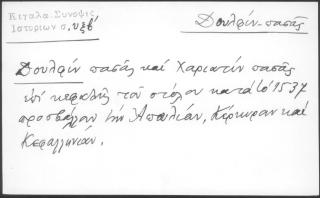 Κιγάλα. Σύνοψις
Ἱστοριῶν σ. υξβ'
Δουλφίν-πασᾶς
Δουλφίν πασᾶς καί Χαριατίν πασᾶς
ἐπί κεφαλῆς τοῦ στόλου κατά τό 1537
προσβάλλουν τήν Ἀπουλίαν, Κέρκυραν καί
Κεφαλληνίαν.